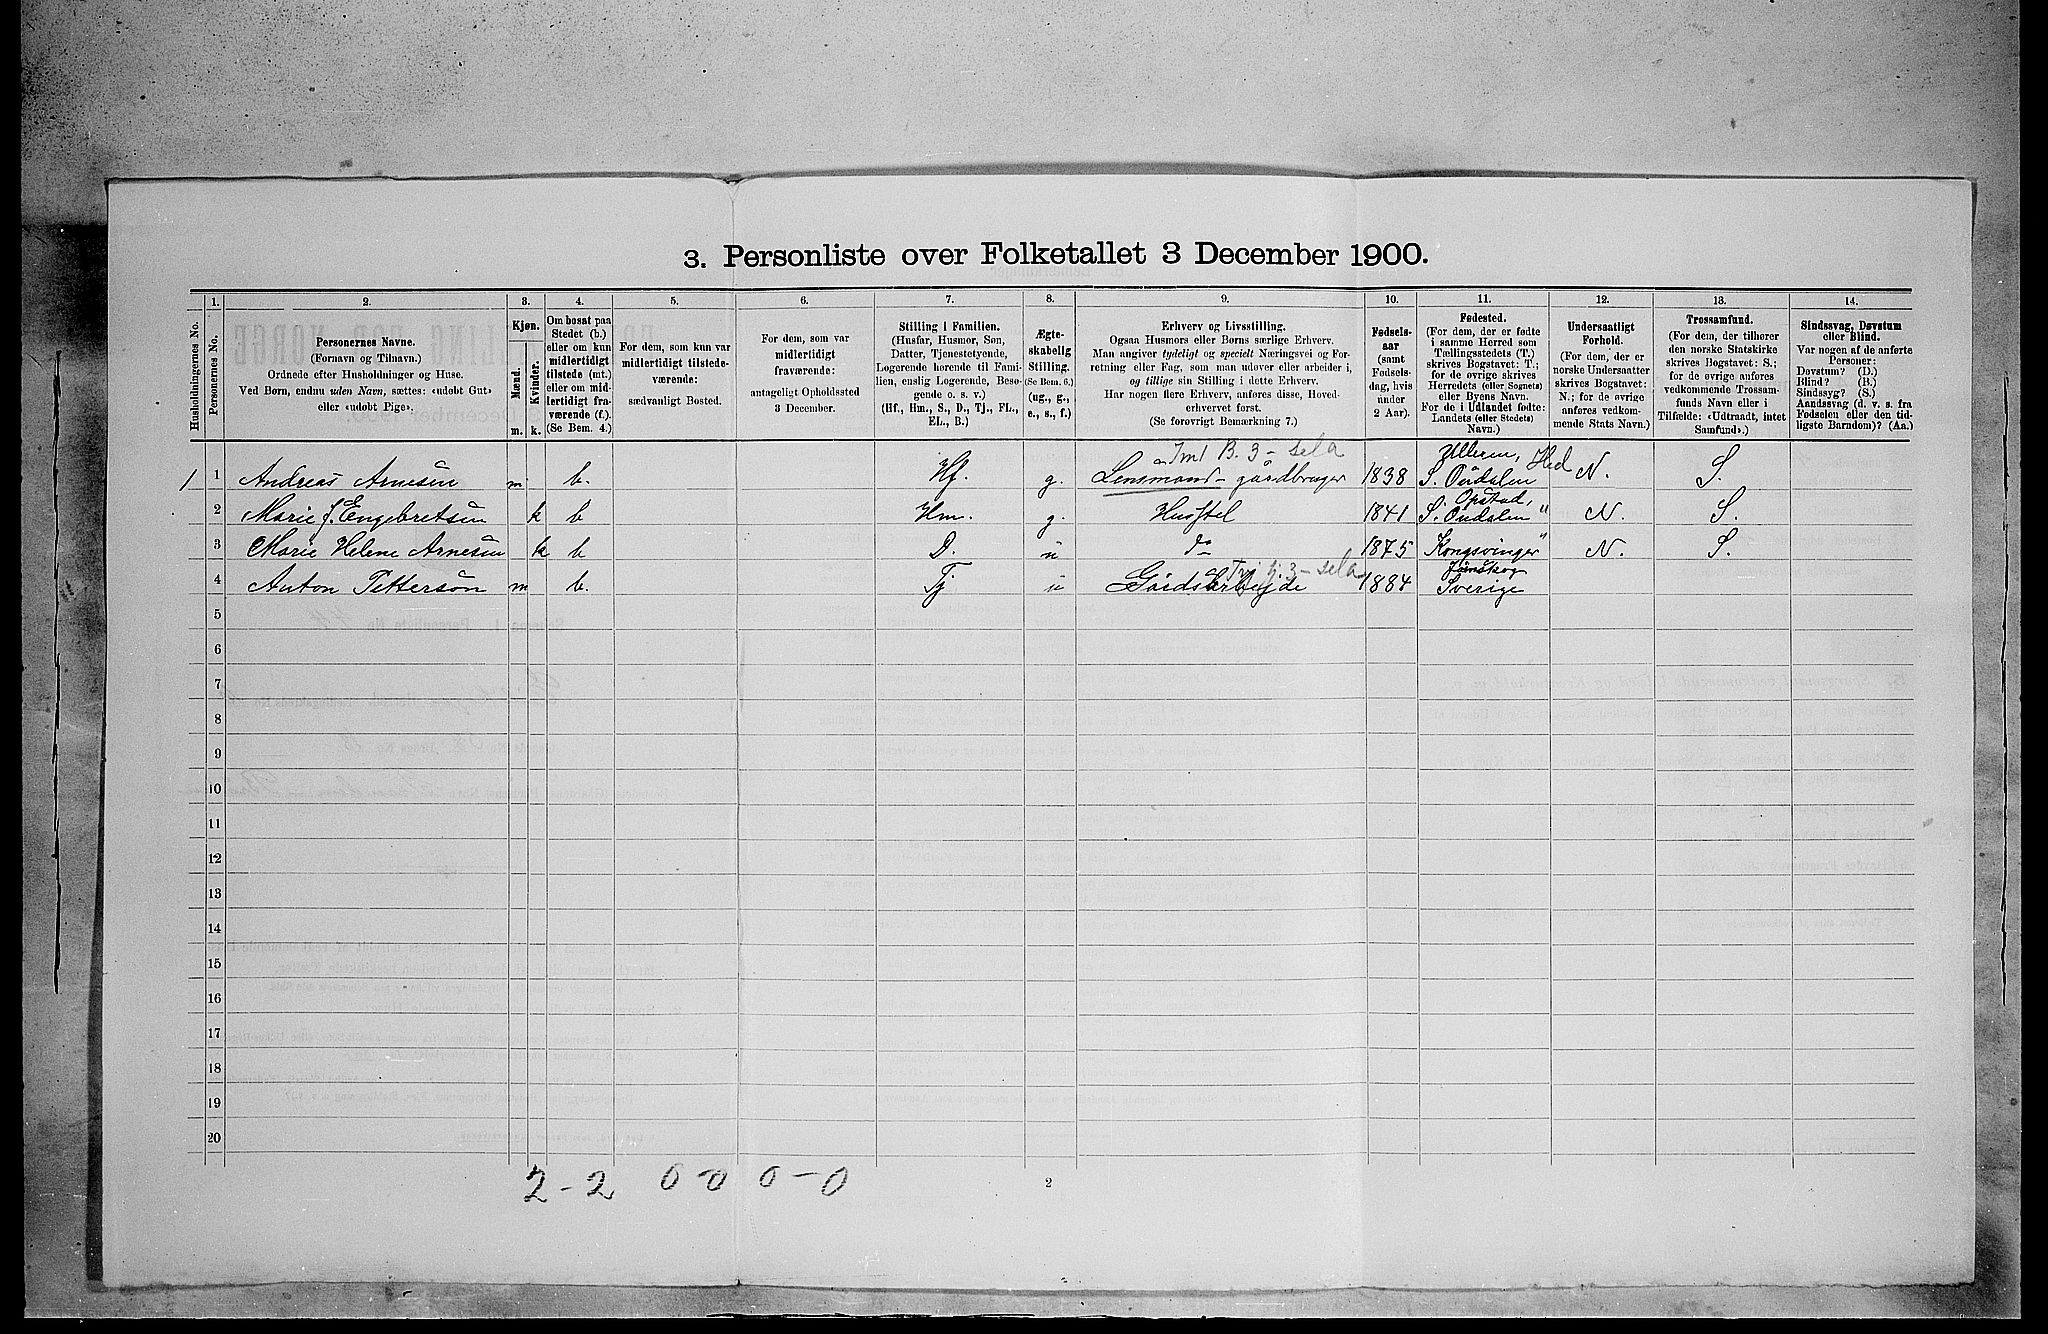 3. Personliste over Folketallet 3 December 1900.
1. 2. 3. 4. 5. 6. 7. 8. 9. 10. 11. 12. 13. 14.
Husholdningernes No.
Personernes No.
Personernes Navne.
(Fornavn og Tilnavn.)
Ordnede efter Husholdninger og Huse.
Ved Børn, endnu uden Navn, sættes: «udøbt Gut»
eller «udøbt Pige».
Kjøn.
Mænd.
Kvinder.
m. k.
Om bosat paa
Stedet (b.)
eller om kun
midlertidigt
tilstede (mt.)
eller om mid-
lertidigt fra-
værende (f.).
(Se Bem. 4.)
For dem, som kun var
midlertidigt tilstede-
værende:
sædvanligt Bosted.
For dem, som var
midlertidigt
fraværende:
antageligt Opholdssted
3 December.
Stilling i Familien.
(Husfar, Husmor, Søn,
Datter, Tjenestetyende,
Logerende hørende til Fami-
lien, enslig Logerende, Besø-
gende o. s. v.)
(Hf., Hm., S., D., Tj., FL.,
EL., B.)
Ægte-
skabelig
Stilling.
(Se Bem. 6.)
(ug., g.,
e., s., f.)
Erhverv og Livsstilling.
Ogsaa Husmors eller Børns særlige Erhverv.
Man angiver tydeligt og specielt Næringsvei og For-
retning eller Fag, som man udøver eller arbeider i,
og tillige sin Stilling i dette Erhverv.
Har nogen flere Erhverv, anføres disse, Hoved-
erhvervet først.
(Se forøvrigt Bemærkning 7.)
Fødsels-
aar
(samt
Fødsels-
dag, hvis
under
2 Aar).
Fødested.
(For dem, der er fødte
i samme Herred som
Tællingsstedets (T.)
skrives Bogstavet: T.;
for de øvrige skrives
Herredets (eller Sognets)
eller Byens Navn.
For de i Udlandet fødte:
Landets (eller Stedets)
Navn.)
Undersaatligt
Forhold.
(For dem, der er
norske Undersaatter
skrives Bogstavet:
N.; for de øvrige
anføres vedkom-
mende Stats Navn.)
Trossamfund.
(For dem, der tilhører
den norske Statskirke
skrives Bogstavet: S.;
for de øvrige anføres
vedkommende Trossam-
funds Navn eller i
Tilfælde: «Udtraadt, intet
Samfund».)
Sindssvag, Døvstum
eller Blind.
Var nogen af de anførte
Personer:
Døvstum? (D.)
Blind? (B.)
Sindssyg? (S.)
Aandssvag (d. v. s. fra
Fødselen eller den tid-
ligste Barndom)? (Aa.)
1 1 Andreas Arnesen m b. Hf. g. Lensmand - gårdbruger 1838 Ulleren, S. Oudalen Hed N. S.
2 Marie f. Engebretsen k b Hm. g. Husstel 1841 Opstad, S. Oudalen " N. S.
3 Marie Helene Arnesen k b D. u do 1875 Kongsvinger " N. S.
4 Anton Pettersøn m b. Tj u Gårdsarbejde 1884 Sverige
5
6
7
8
9
10
11
12
13
14
15
16
17
18
19
20
2 - 2 0 - 0 0 - 0
2